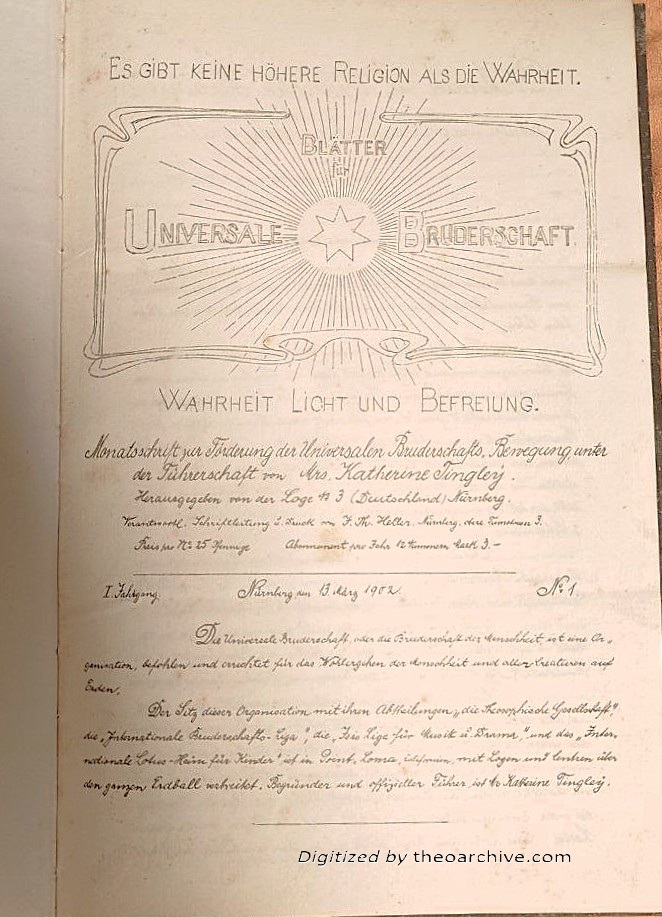 ES GIBT KEINE HÖHERE RELIGION ALS DIE WAHRHEIT.
BLÄTTER
für
UNIVERSALE BRUDERSCHAFT
WAHRHEIT LICHT UND BEFREIUNG.
Monatsschrift zur Förderung der Universalen Bruderschafts, Bewegung, unter
der Führerschaft von Mrs. Katherine Tingley.
Herausgegeben von der Loge № 3 (Deutschland) Nürnberg.
Verantwortl. Schriftleitung u. Druck von J. Th. Heller. Nürnberg, obere 3.
Preis pro № 25 Pfennige Abonnement pro Jahr 12 Nummern Mark 3.–
I. Jahrgang. Nürnberg den 13. März 1902. № 1.
Die Universale Bruderschaft, oder die Bruderschaft der Menschheit, ist eine Or-
ganisation, befohlen und errichtet für das Wohlergehen der Menschheit und aller Creaturen auf
Erden.
Der Sitz dieser Organisation mit ihren Abtheilungen „die Theosophische Gesellschaft",
die „Internationale Bruderschafts-Liga", die „Isis Lige für Musik u. Drama", und das „Inter-
nationale Lotus-Heim für Kinder", ist in Point, Loma, mit Logen und über
den ganzen Erdball verbreitet. Begründer und offizieller Führer ist Katherine Tingley.
Digitized by theoarchive.com